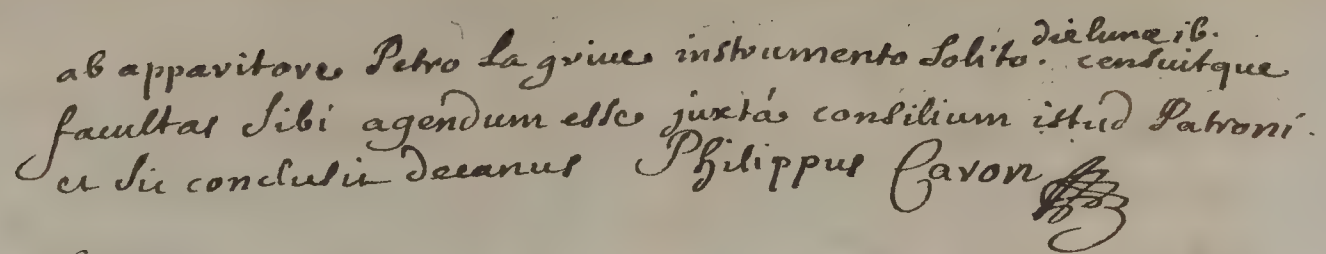 die lunæ 16.
ab apparitore Petro La grive instrumento solito. censuitque
facultas sibi agendum esse juxtá consilium istud Patroni.
et sic conclusit decanus Philippus Caron